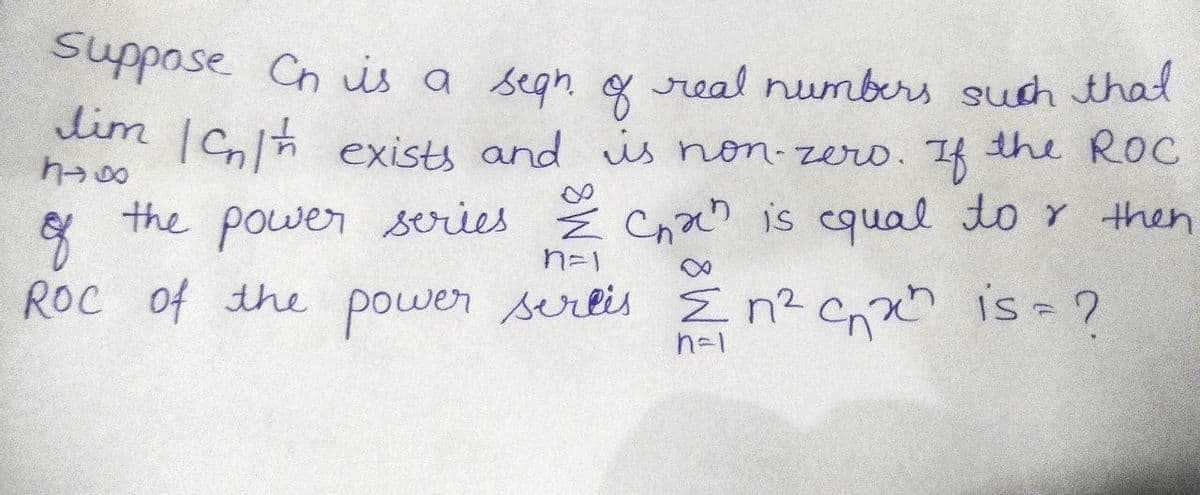 Suppose Cn is a seqn. of real numbers such that
lim n→∞ |Cn|^1/n exists and is non-zero. If the ROC
of the power series ∞ Σ n=1 Cnx^n is equal to r then
ROC of the power sereis ∞ Σ n=1 n² Cnx^n is = ?